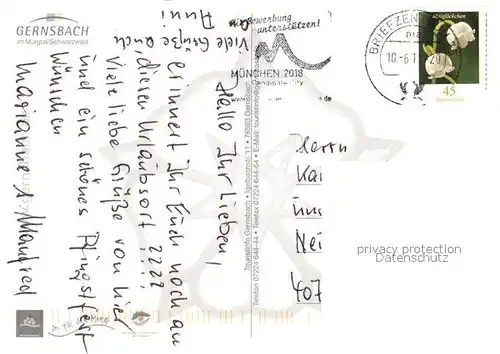 GERNSBACH
im Murgtal/Schwarzwald
Hallo Ihr Lieben!
erinnert Ihr Euch noch an
diesen Urlaubsort????
Viele liebe Grüße von hier
und ein schönes Pfingstfest
wünschen
Marianne & Manfred
Viele Grüße auch
Touristinfo Gernsbach • Igelbachstr. 11 • 76593 Gernsbach
Telefon 07224 644-44 • Telefax 07224 644-64 • E-Mail: touristinfo@
Bewerbung
unterstützen!
MÜNCHEN 2018
Candidate City
BRIEFZEN
10.-6.1
20
Maiglöckchen
45
Deutschland
Herrn
Kai
Nei
407
privacy protection
Datenschutz